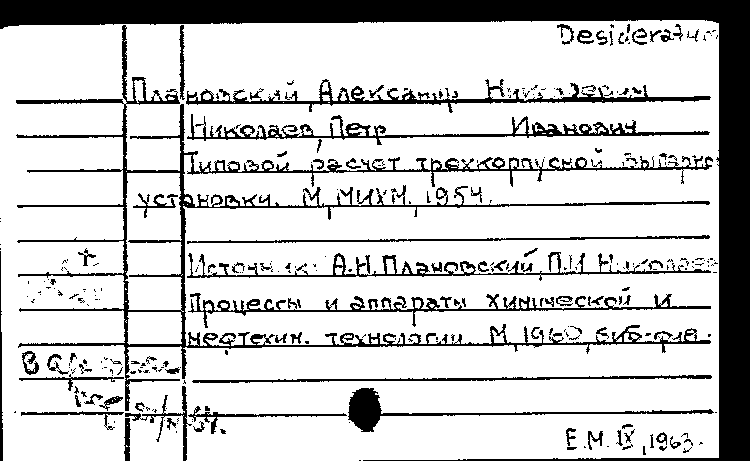 Desideratum
Плановский, Александр Николаевич
Николаев, Петр Иванович
Типовой расчет трехкорпусной выпарно
установки. М, МИХМ, 1954.
Источник: А.Н. Плановский, П.И Николаев
Процессы и аппараты химической и
нефтехим. технологии. М, 1960, биб-фия.
В
Е.М. IX, 1963.